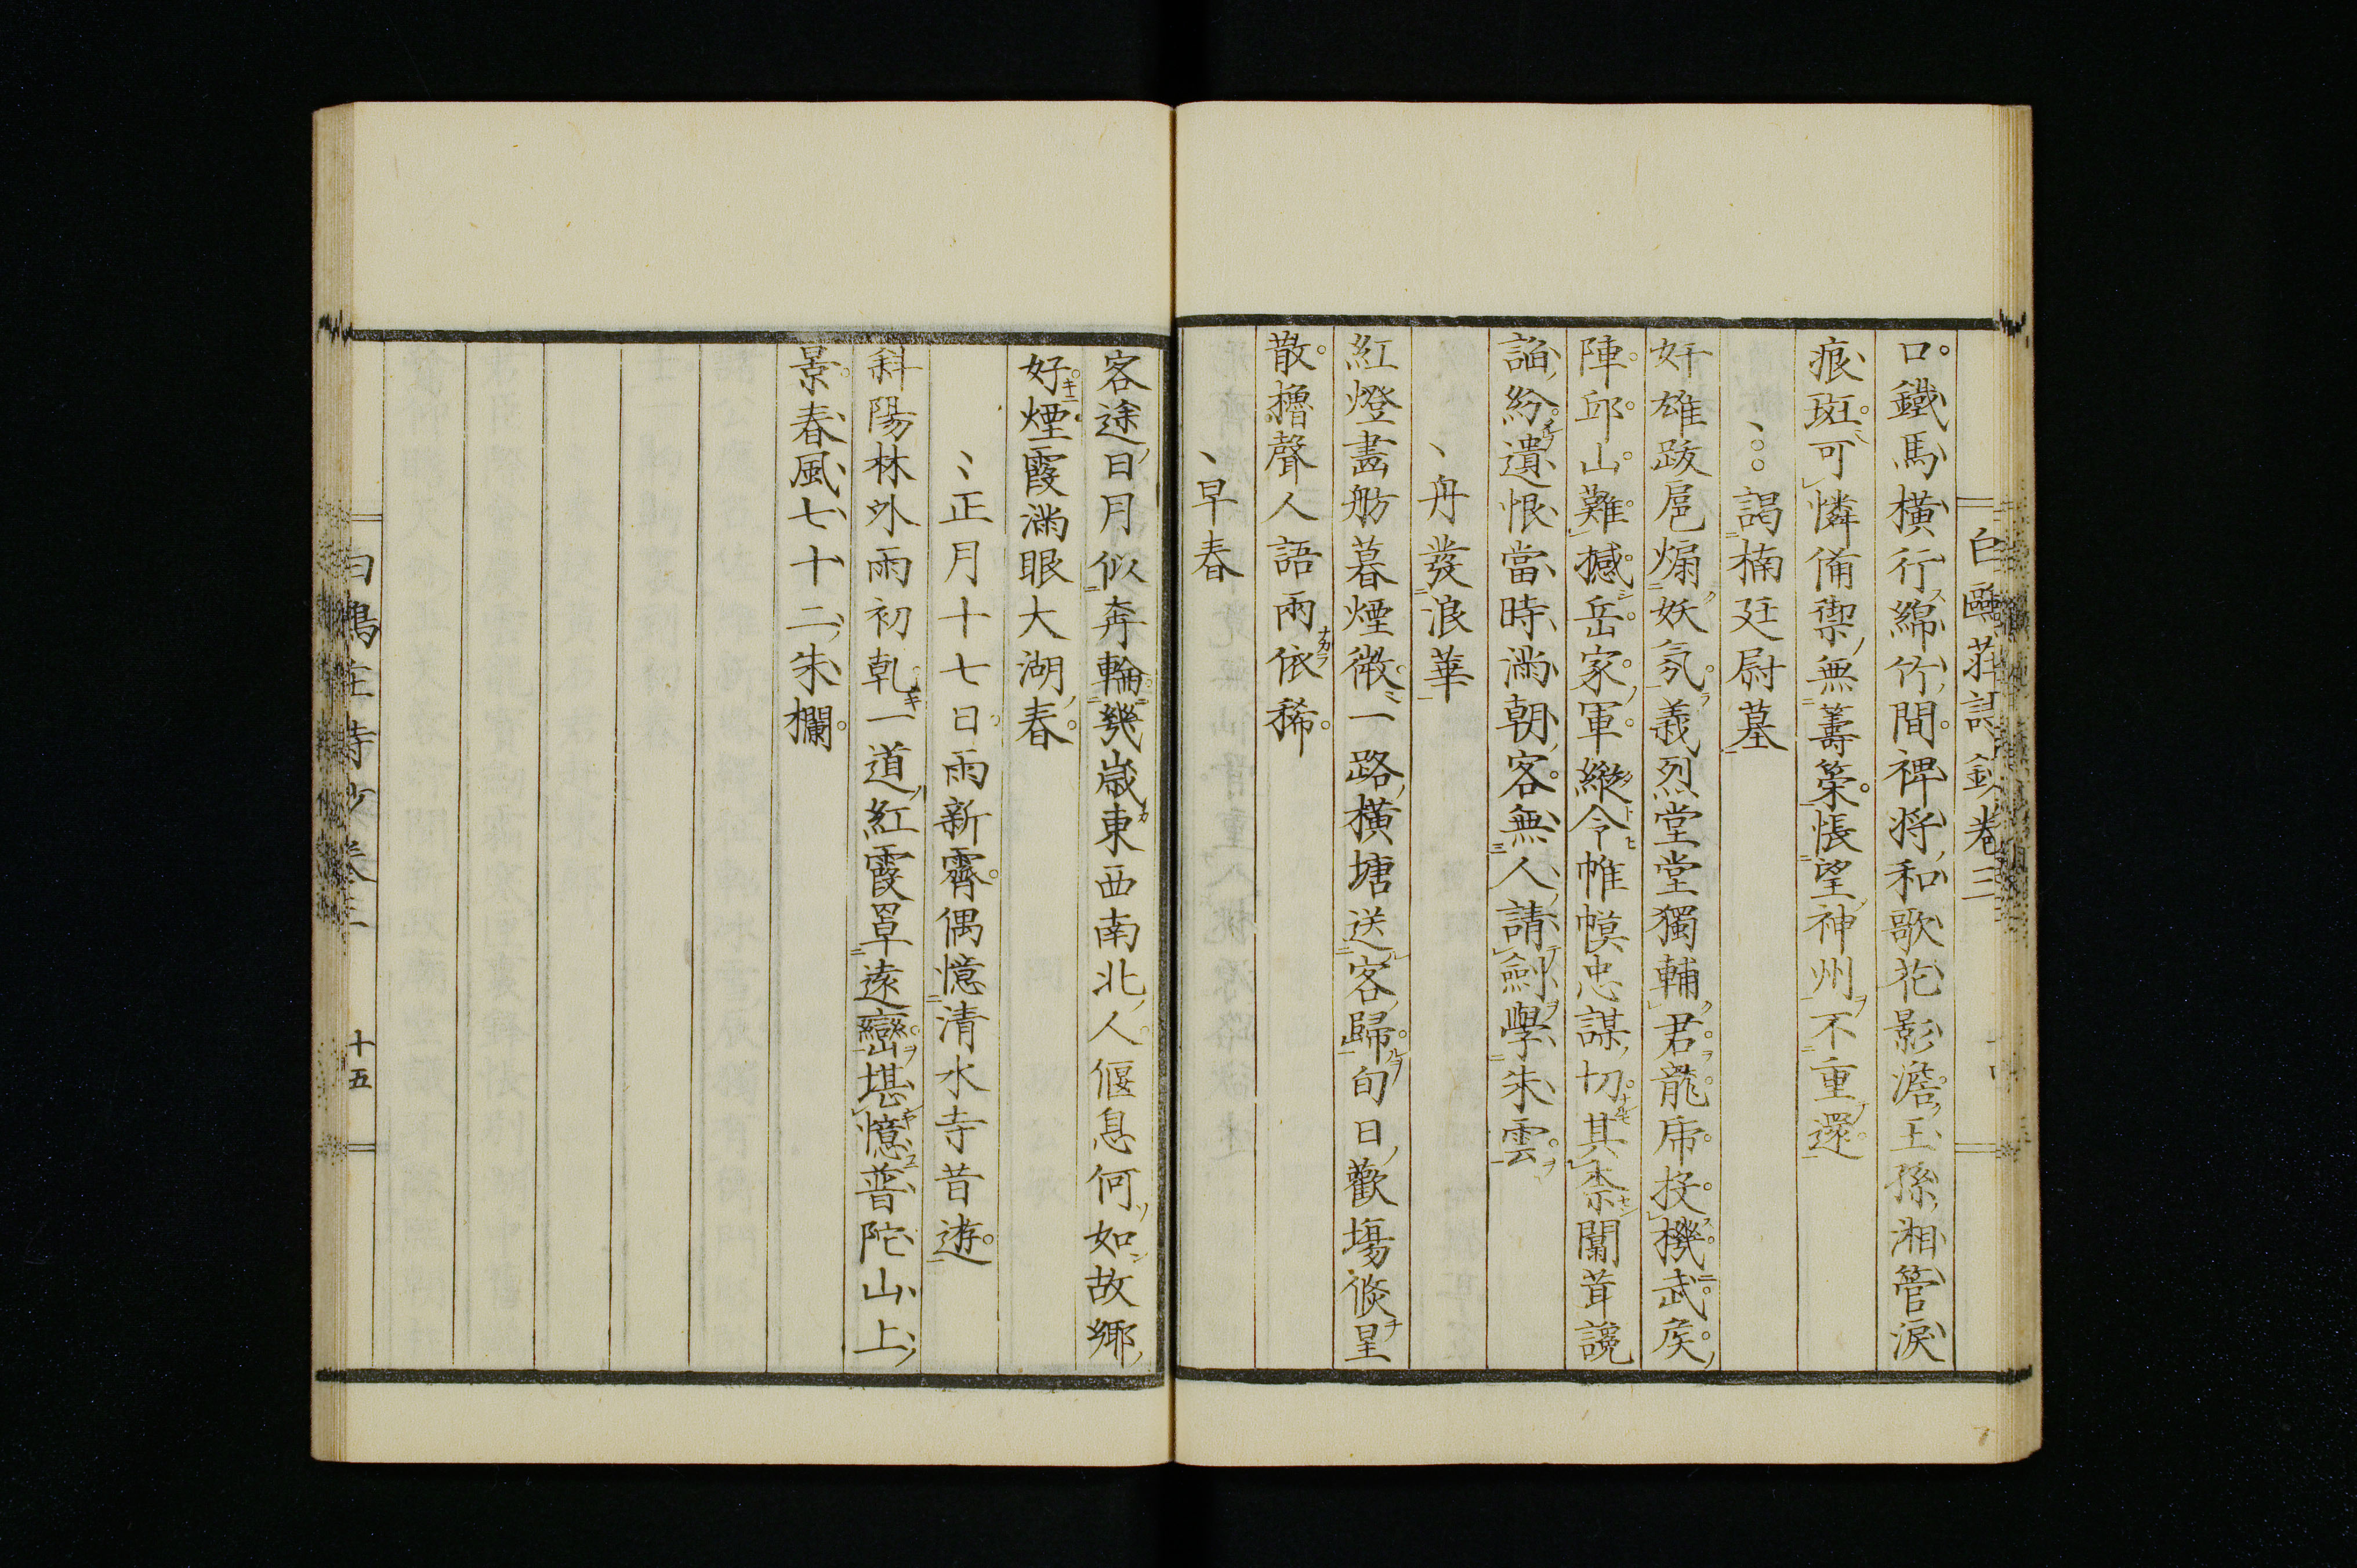 白鷗莊詩鈔卷三
口鐵馬橫行綿竹間裨将和歌花影澹王孫湘管淚
痕斑可憐備禦無籌策悵望神州不重還
謁楠廷尉墓
奸雄跋扈煽妖氛義烈堂堂獨輔君龍虎投機武侯
陣邱山難撼岳家軍縱令帷幄忠謀切其柰闒茸讒
諂紛遺恨當時滿朝客無人請劍學朱雲
舟發浪華
紅燈畵舫暮煙微一路橫塘送客歸旬日歡塲倐星
散櫓聲人語兩依稀
早春
客途日月似奔輪幾歲東西南北人偃息何如故鄉
好煙霞滿眼大湖春
正月十七日雨新霽偶憶清水寺昔遊
斜陽林外雨初乹一道紅霞罩遠巒堪憶普陀山上
景春風七十二朱欄
十五